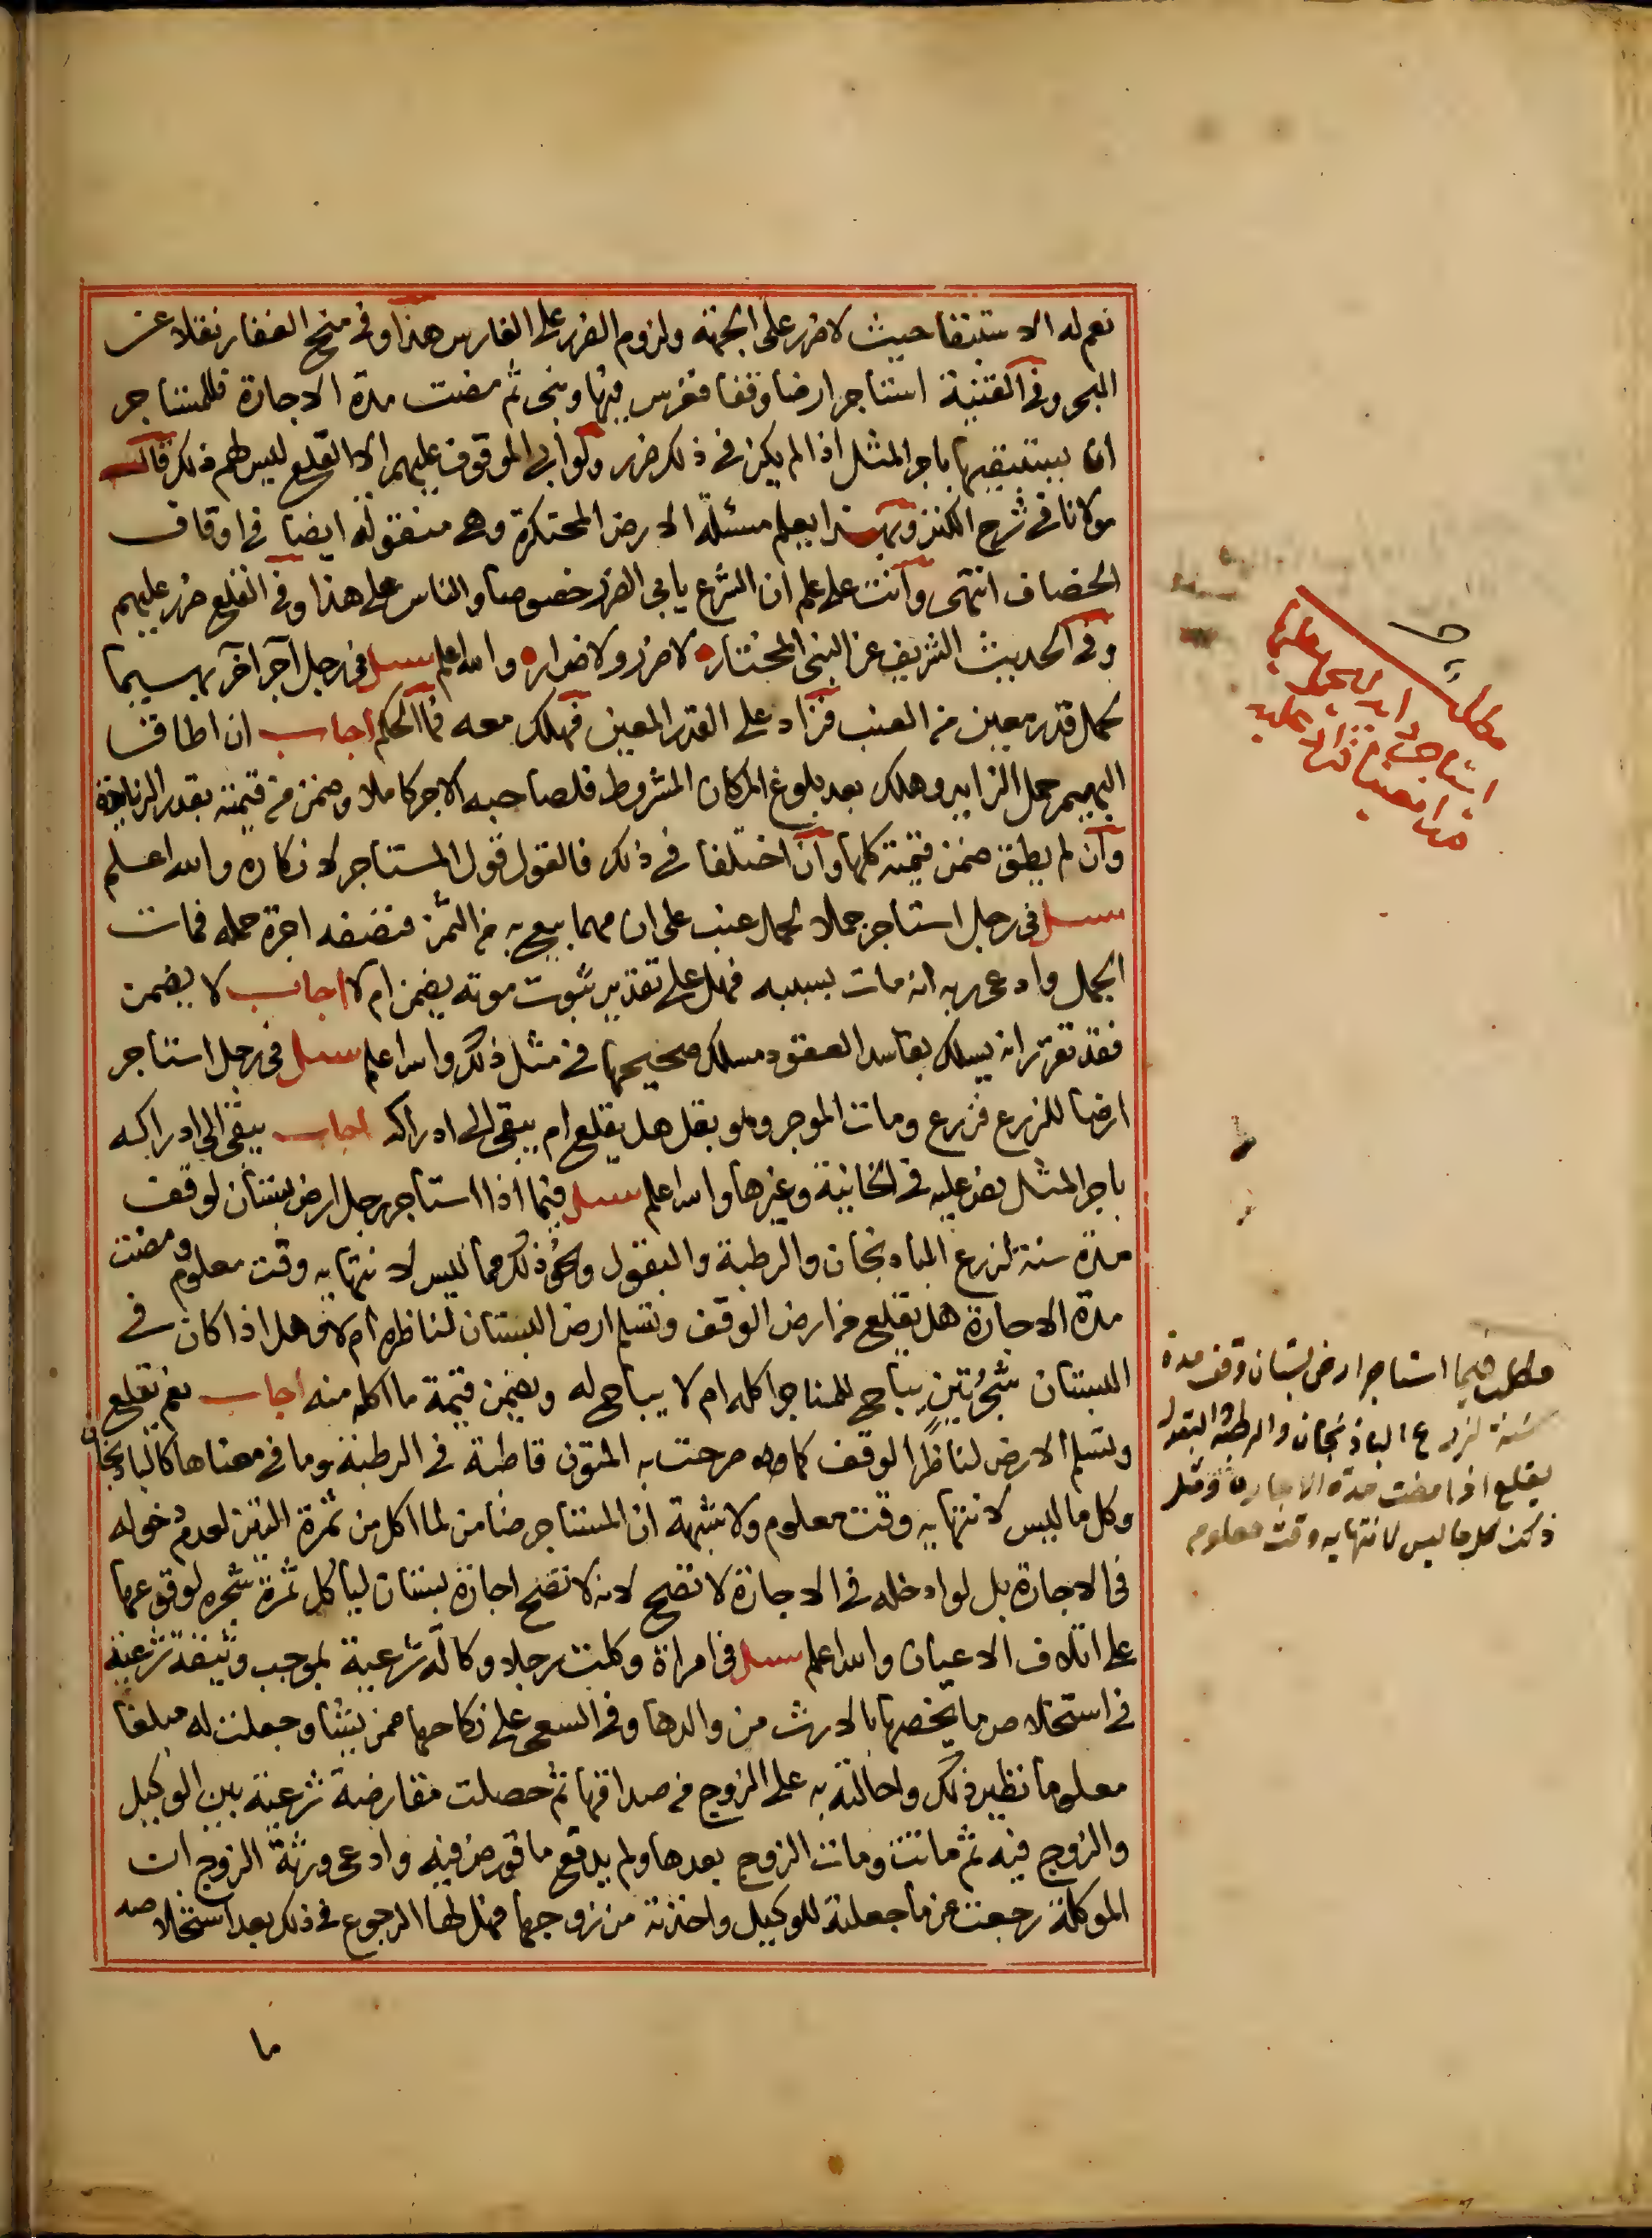 نعم له الاستبقا حيث لا ضرر على الجهة ولزوم الضرر على الغارس هذا وفي منح الغفار نقلا عن
البحر وفي القنية استاجر ارضا وقفا فغرس فيها وبنى ثم مضت مدة الاجارة فللمستاجر
ان يستبقيها باجر المثل اذا لم يكن في ذلك ضرر ولو ابى الموقوف عليهم الا القلع ليس لهم ذلك قال
مولانا في شرح الكنز وبهذا يعلم مسئلة الارض المحتكرة وهي منقولة ايضا في اوقاف
الخصاف انتهى وانت على علم ان الشرع يابى الضرر خصوصا والناس على هذا وفي القلع ضرر عليهم
وفي الحديث الشريف عن النبي المختار لا ضرر ولا ضرار والله اعلم سيل في رجل آجر آخر بهيما
لحمل قدر معين من العنب فزاد على القدر المعين فهلك معه فما الحكم اجاب ان اطاقت
البهيم حمل الزايد وهلك بعد بلوغ المكان المشروط فلصاحبه الاجر كاملا وضمن من قيمته بقدر الزيادة
وان لم يطق ضمن قيمته كلها وان اختلفا في ذلك فالقول قول المستاجر لانكاره والله اعلم
سيل في رجل استاجر جملا لحمل عنب على ان مهما بيع به من الثمن فنصفه اجرة حمله فمات
الجمل وادعى ربه انه مات بسببه فهل على تقدير ثبوت موته يضمن ام لا اجاب لا يضمن
فقد تقرر انه يسلك بفاسد العقود مسلك صحيحها في مثل ذلك والله اعلم سيل في رجل استاجر
ارضا للزرع فزرع ومات الموجر وهو بقل هل يقلع ام يبقى الى ادراكه اجاب يبقى الى ادراكه
باجر المثل نص عليه في الخانية وغيرها والله اعلم سيل فيما اذا استاجر رجل ارض بستان لوقف
مدة سنة لزرع الباذنجان والرطبة والبقول ونحو ذلك مما ليس لانتهايه وقت معلوم ومضت
مدة الاجارة هل يقلع من ارض الوقف وتسلم ارض البستان لناظره ام لا وهل اذا كان في
البستان شجر تين يباح للمتاجر اكله ام لا يباح له ويضمن قيمة ما اكله منه اجاب نعم يقلع
وتسلم الارض لناظر الوقف كما صرحت به المتون قاطبة في الرطبة وما في معناها كالباذنجان
وكل ما ليس لانتهايه وقت معلوم ولا شبهة ان المستاجر ضامن لما اكل من ثمرة التين لعدم دخوله
في الاجارة بل لو ادخله في الاجارة لا تصح لانه لا تصح اجارة بستان لياكل ثمرة شجره لوقوعها
على اتلاف الاعيان والله اعلم سيل في امراة وكلت رجلا وكالة شرعية بموجب وثيقة شرعية
في استخلاص ما يخصها بالارث من والدها وفي السعي على نكاحها ممن يشا وجعلت له مبلغا
معلوما نظير ذلك واحالته به على الزوج من صداقها ثم حصلت مقارضة شرعية بين الوكيل
والزوج فيه ثم ماتت ومات الزوج بعدها ولم يدفع ما قورض فيه وادعى ورثة الزوج ان
الموكلة رجعت عن ما جعلته للوكيل واخذته من زوجها فهل لها الرجوع في ذلك بعد استخلاصه
ما
مطلب
استاجر دابة ليحمل عليها
قدرا معينا فزاد عليه
مطلب فيما استاجر ارض بستان وقف مدة
سنة لزرع الباذنجان والرطبة والبقول
يقلع اذا مضت مدة الاجارة ومثل
ذلك كل ما ليس لانتهايه وقت معلوم